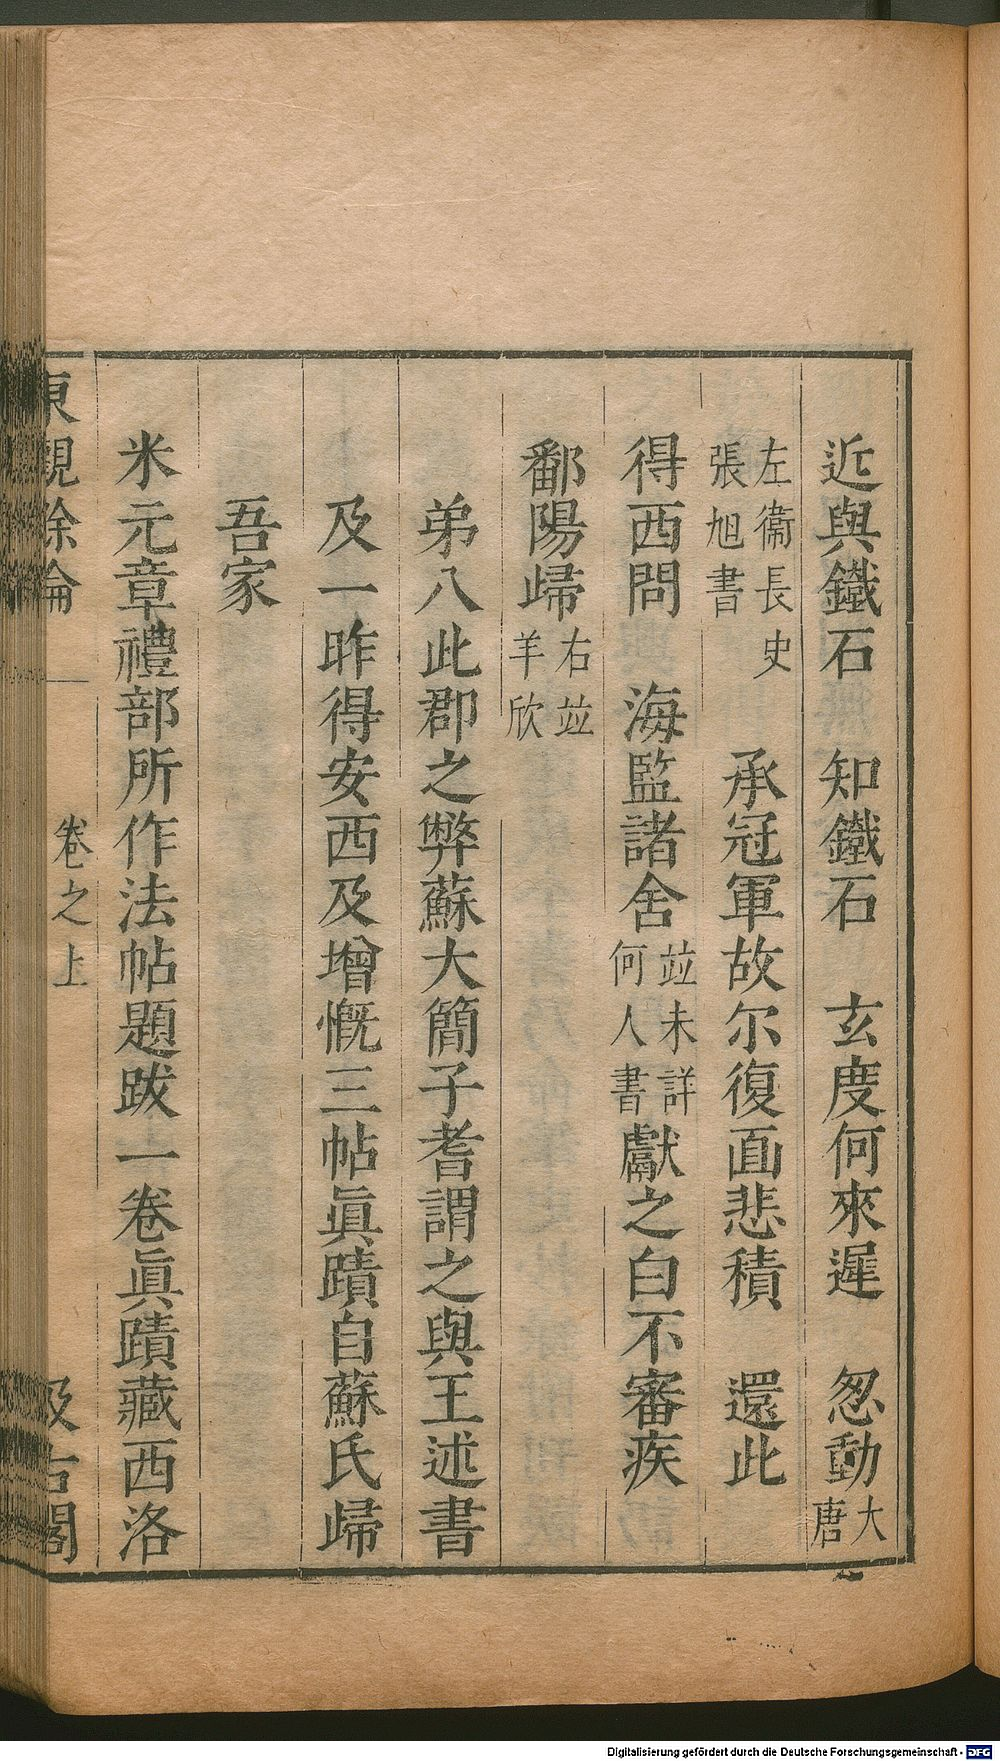 近與鐵石　知鐵石　玄度何來遲　忽動大唐
左衞長史張旭書　承冠軍故尔復面悲積　還此
得西問　海監諸舍竝未詳何人書獻之白不審疾
鄱陽歸右竝羊欣
弟八此郡之弊蘇大簡子耆謂之與王述書
及一昨得安西及增慨三帖眞蹟自蘇氏歸
吾家
米元章禮部所作法帖題跋一卷眞蹟藏西洛
東觀餘論　卷之上　汲古閣
Digitalisierung gefördert durch die Deutsche Forschungsgemeinschaft - DFG